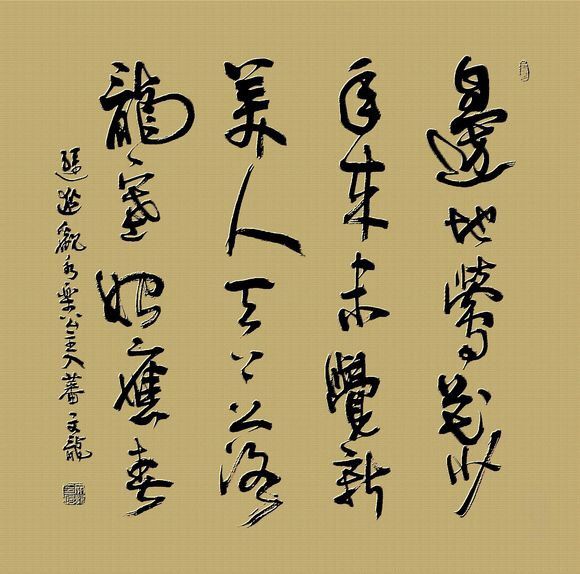 邊地鶯花少
年來未覺新
美人天上落
龍塞始應春
孫逖觀永樂公主入蕃 文龍